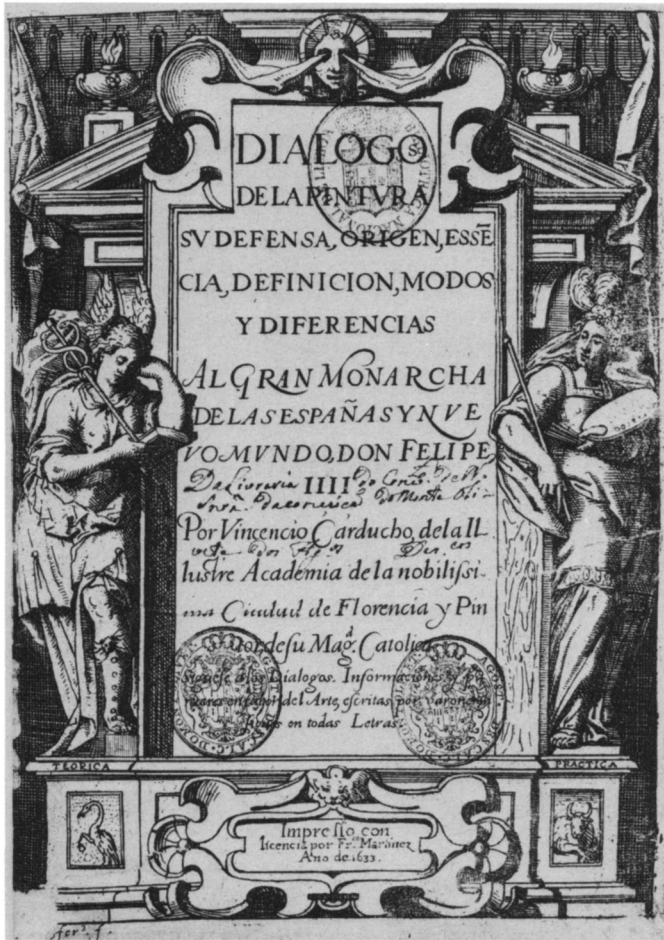 DIALOGOS
DE LA PINTVRA
SV DEFENSA, ORIGEN, ESSẼ
CIA, DEFINICION, MODOS
Y DIFERENCIAS
AL GRAN MONARCHA
DE LAS ESPAÑAS Y NVE
VO MVNDO, DON FELIPE
Da Livraria
IIII
Por Vincencio Carducho, de la Il
lustre Academia de la nobilissi
ma Ciudad de Florencia y Pin
tor de su Mag.d Catolica
Siguese a los Dialogos. Informaciones y
en fabor del Arte, escritas por varones
en todas Letras.
TEORICA
PRACTICA
Impresso con
licencia por Fr.co Martinez
Año de 1633.